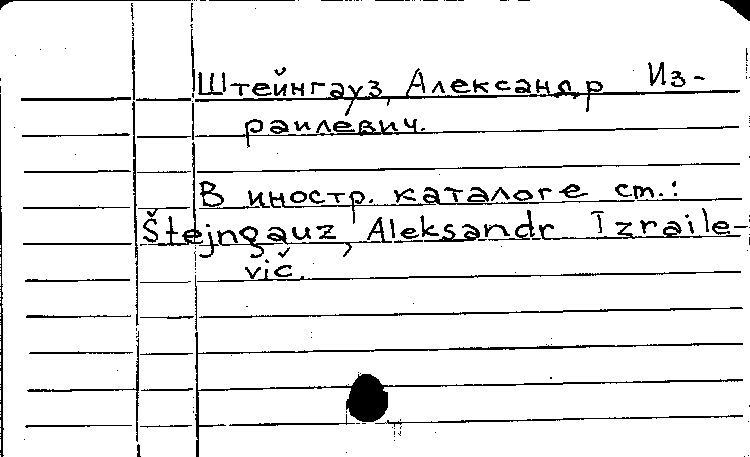 Штейнгауз, Александр Из-
раилевич.
В иностр. каталоге см.:
Štejngauz, Aleksandr Izraile-
vič.